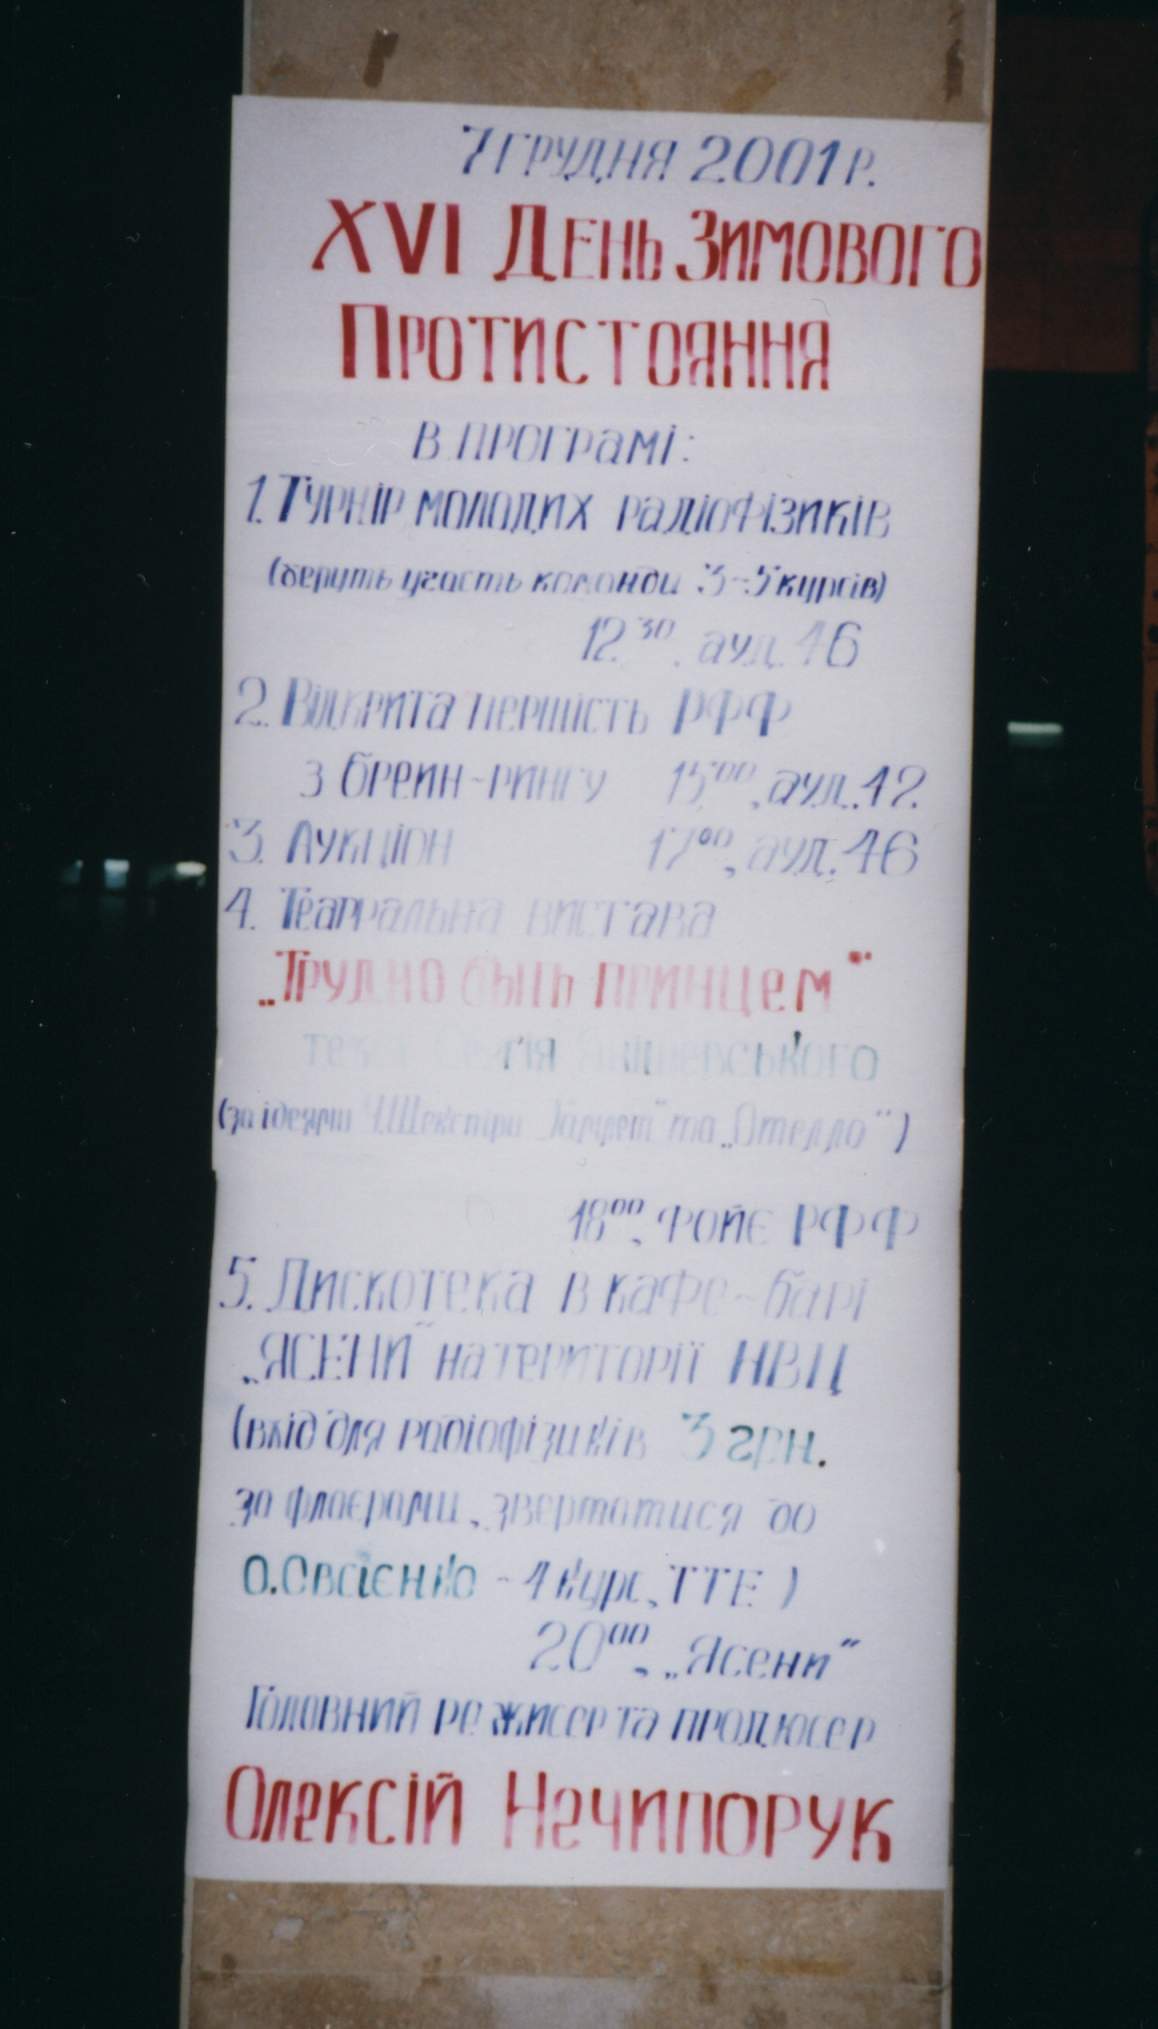 7 грудня 2001 р.
XVI День Зимового
Протистояння
В програмі:
1. Турнір молодих радіофізиків
(беруть участь команди 3-5 курсів)
12³⁰, ауд. 46
2. Відкрита першість РФФ
з брейн-рингу 15⁰⁰, ауд. 42.
3. Аукціон 17⁰⁰, ауд. 46
4. Театральна вистава
„Трудно быть принцем"
текст Сергія
(за ідеями У.Шекспіра „Гамлет" та „Отелло")
18⁰⁰, фойє РФФ
5. Дискотека в кафе-барі
„ЯСЕНИ" на території НВЦ
(вхід для радіофізиків 3 грн.
за флаєрами, звертатися до
О.Овсієнко - 4 курс, ТТЕ)
20⁰⁰, „Ясени"
Головний режисер та продюсер
Олексій Нечипорук